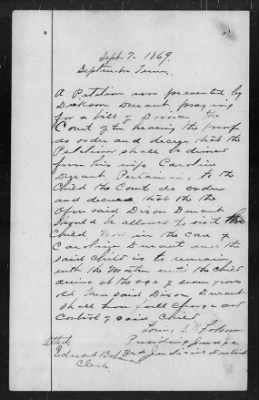 Sept. 7. 1869
September Term,
A Petition was presented by
Dickson Durant praying
for a bill of Divorce the
Court after hearing the proof
do order and decree that the
Petitioner shall be divorced
from his wife Caroline
Durant. Pertaining to the
Child the Court do order
and decree that the
said Dixon Durant
should be allowed to visit the
Child now in the care of
Caroline Durant and the
said child is to remain
with the Mother until the child
arrives at the age of seven years
old then said Dixon Durant
shall have full charge and
control of said child
Presiding Judge
Attest 3rd Judicial District
Edward
Clerk